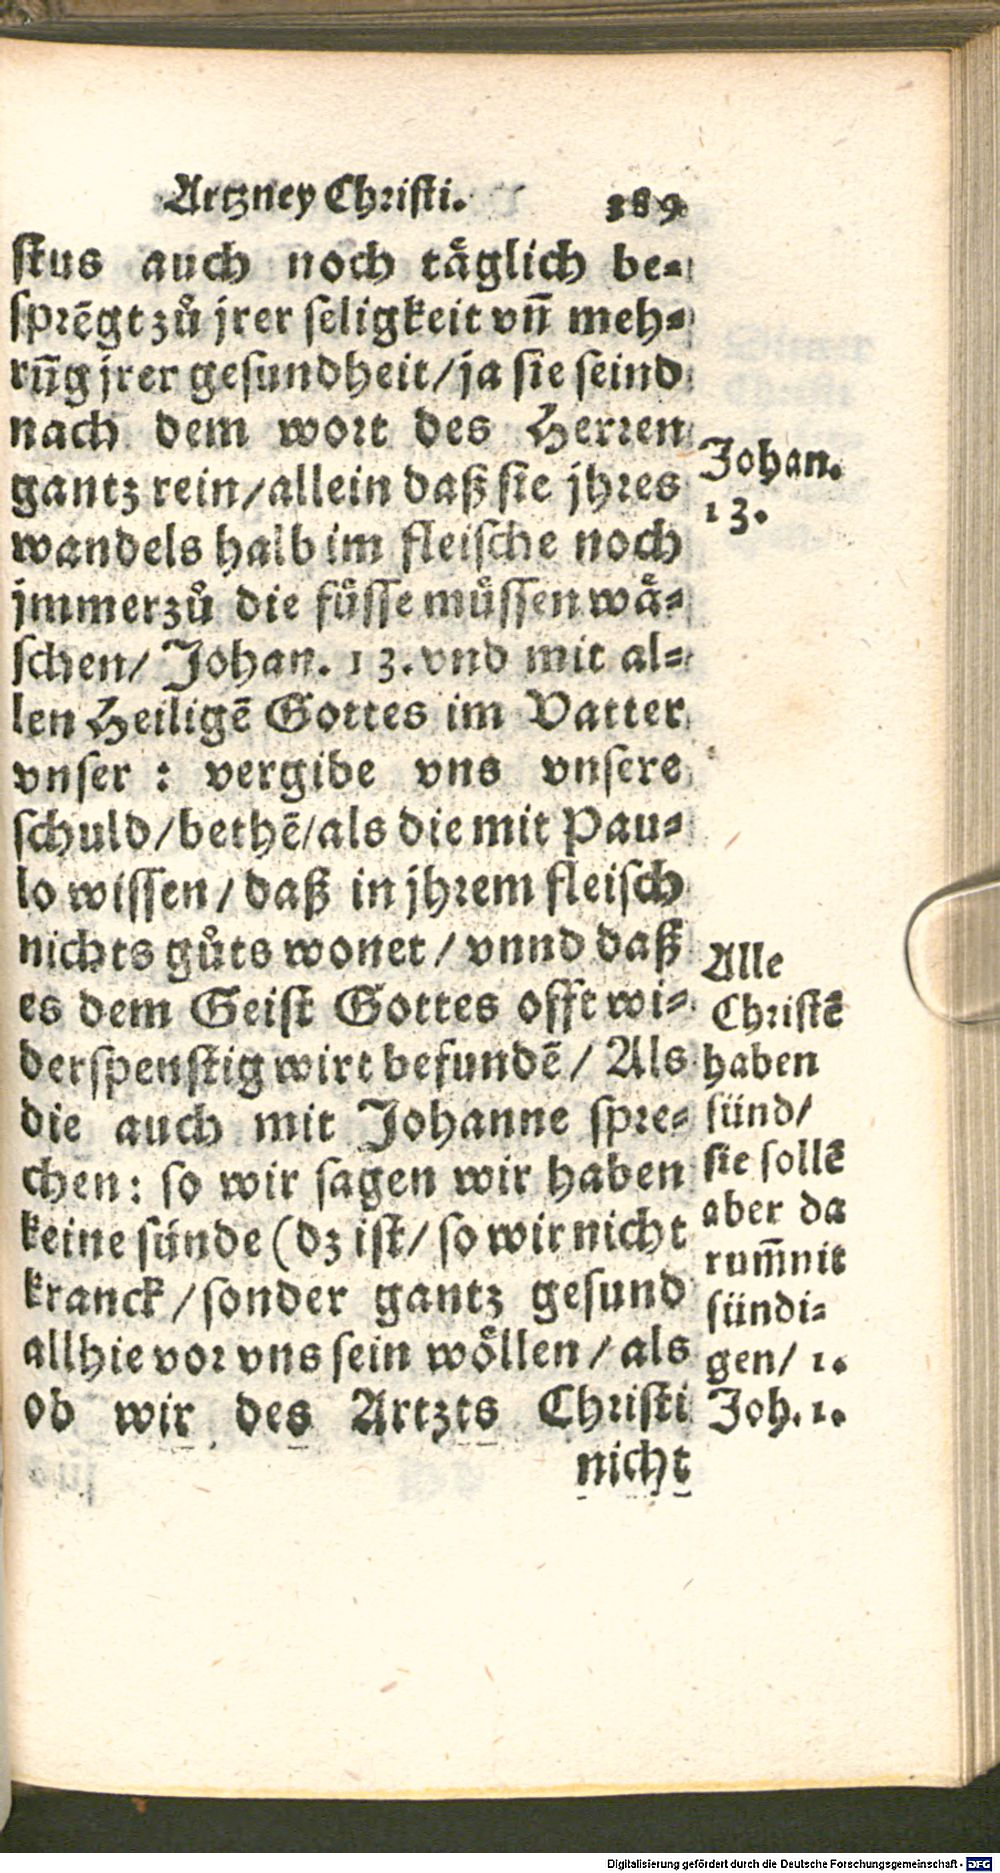 Artzney Christi. 189
stus auch noch täglich be-
sprēgt zů jrer seligkeit vñ meh-
rūg jrer gesundheit/ja sie seind
nach dem wort des Herren
gantz rein/allein daß sie jhres
wandels halb im fleische noch
jmmerzů die füsse müssen wä-
schen/ Johan. 13. vnd mit al-
len Heiligē Gottes im Vatter
vnser : vergibe vns vnsere
schuld/bethē/als die mit Pau-
lo wissen/daß in jhrem fleisch
nichts gůts wonet/vnnd daß
es dem Geist Gottes offt wi-
derspenstig wirt befundē/ Als
die auch mit Johanne spre-
chen: so wir sagen wir haben
keine sünde (dz ist/ so wir nicht
kranck/sonder gantz gesund
allhie vor vns sein wöllen/als
ob wir des Artzts Christi
nicht
Johan.
13.
Alle
Christē
haben
sünd/
sie sollē
aber da
rum̄nit
sündi-
gen/ 1.
Joh. 1.
Digitalisierung gefördert durch die Deutsche Forschungsgemeinschaft - DFG